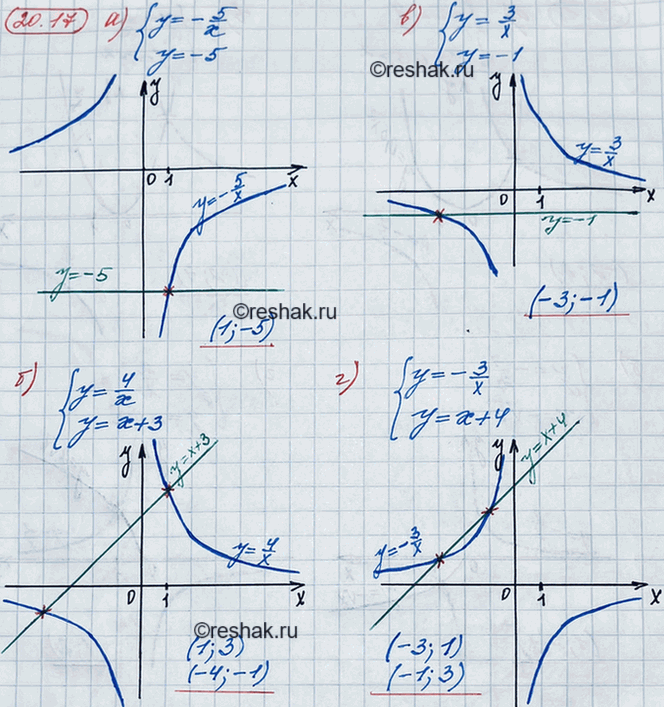 20.17 а) { y = - 5/x
y = -5
y
0 1 x
y = - 5/x
y = -5
(1; -5)
в) { y = 3/x
y = -1
©reshak.ru
y
y = 3/x
0 1 x
y = -1
(-3; -1)
©reshak.ru
б) { y = 4/x
y = x+3
y
y = x+3
y = 4/x
0 1 x
©reshak.ru
(1; 3)
(-4; -1)
г) { y = - 3/x
y = x+4
y
y = x+4
y = - 3/x
0 1 x
(-3; 1)
(-1; 3)